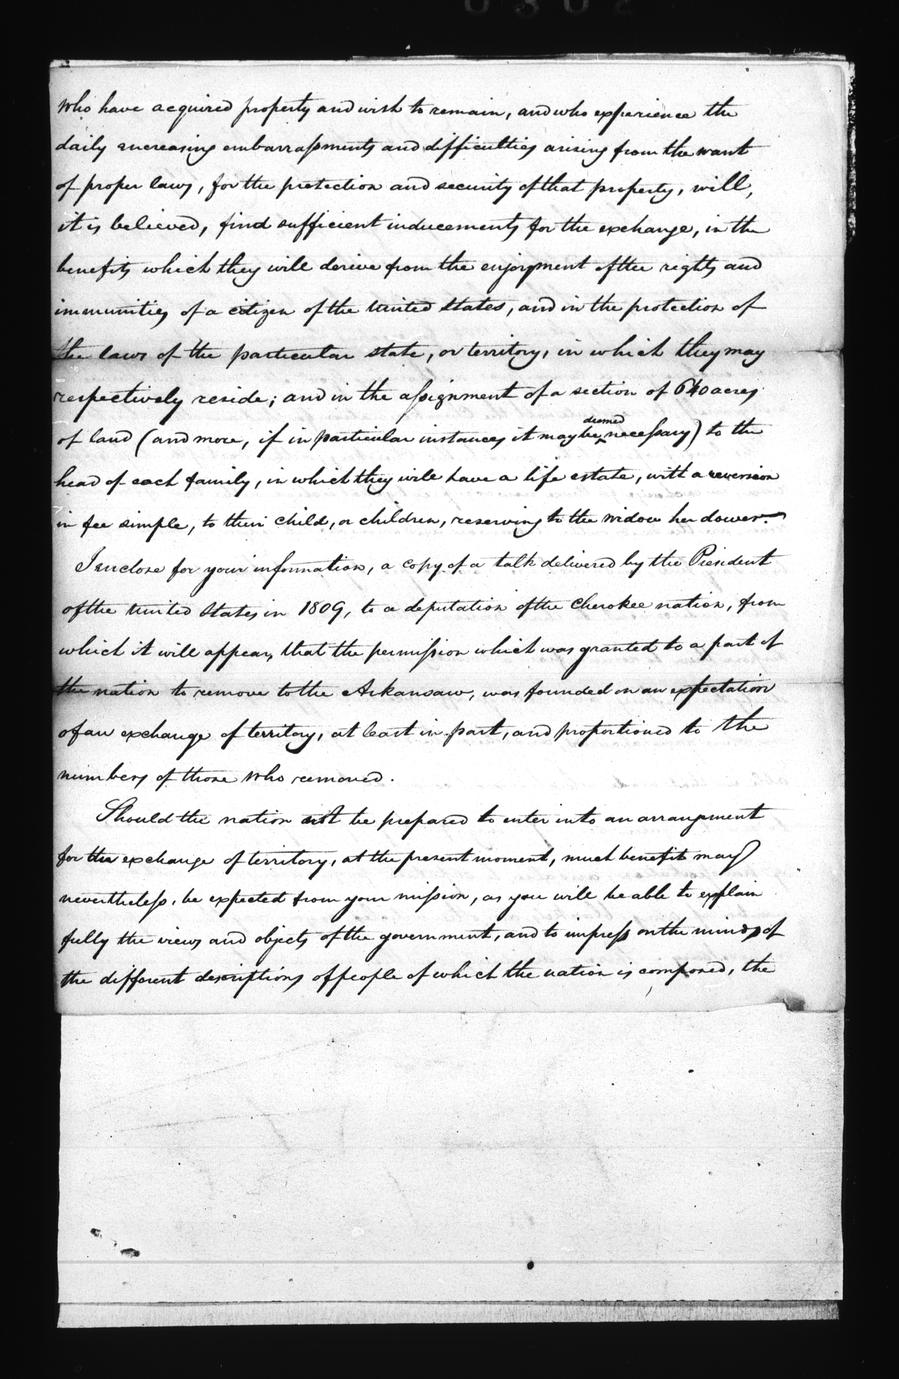 who have acquired property and wish to remain, and who experience the
daily encreasing embarrassments and difficulties arising from the want
of proper laws, for the protection and security of that property, will,
it is believed, find sufficient inducements for the exchange, in the
benefits which they will derive from the enjoyment of the rights and
immunities of a citizen of the United States, and in the protection of
the laws of the particular state, or territory, in which they may
respectively reside; and in the assignment of a section of 640 acres
of land (and more, if in particular instances it may be deemed necessary) to the
head of each family, in which they will have a life estate, with a reversion
in fee simple, to their child, or children, reserving to the widow her dower.
I enclose for your information, a copy of a talk delivered by the President
of the United States in 1809, to a deputation of the Cherokee nation, from
which it will appear, that the permission which was granted to a part of
the nation to remove to the Arkansaw, was founded on an expectation
of an exchange of territory, at least in part, and proportioned to the
numbers of those who removed.
Should the nation not be prepared to enter into an arrangement
for the exchange of territory, at the present moment, much benefit may
nevertheless, be expected from your mission, as you will be able to explain
fully the views and objects of the government, and to impress on the minds of
the different descriptions of people of which the nation is composed, the